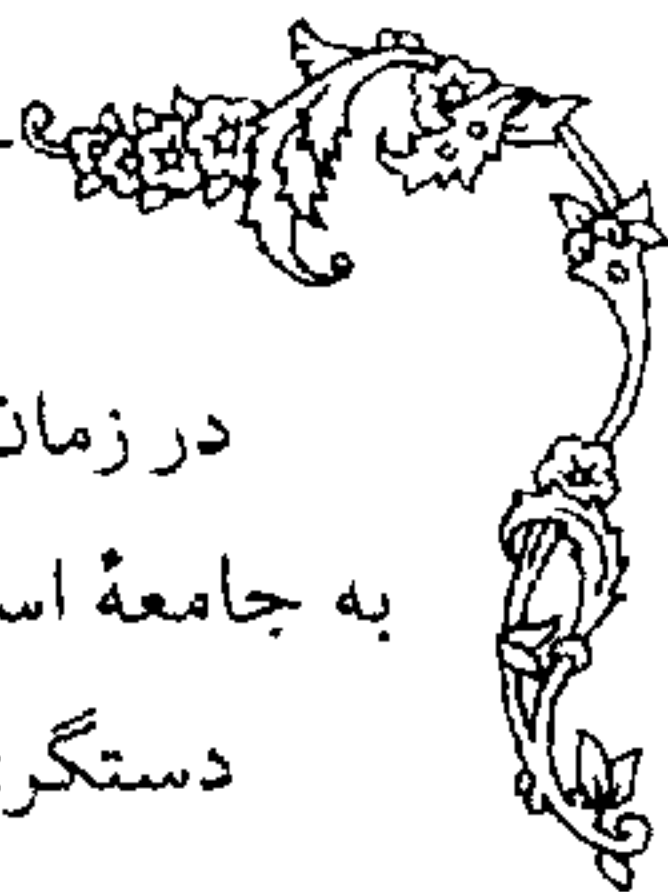 در زمان
به جامعهٔ اسـ
دستگر